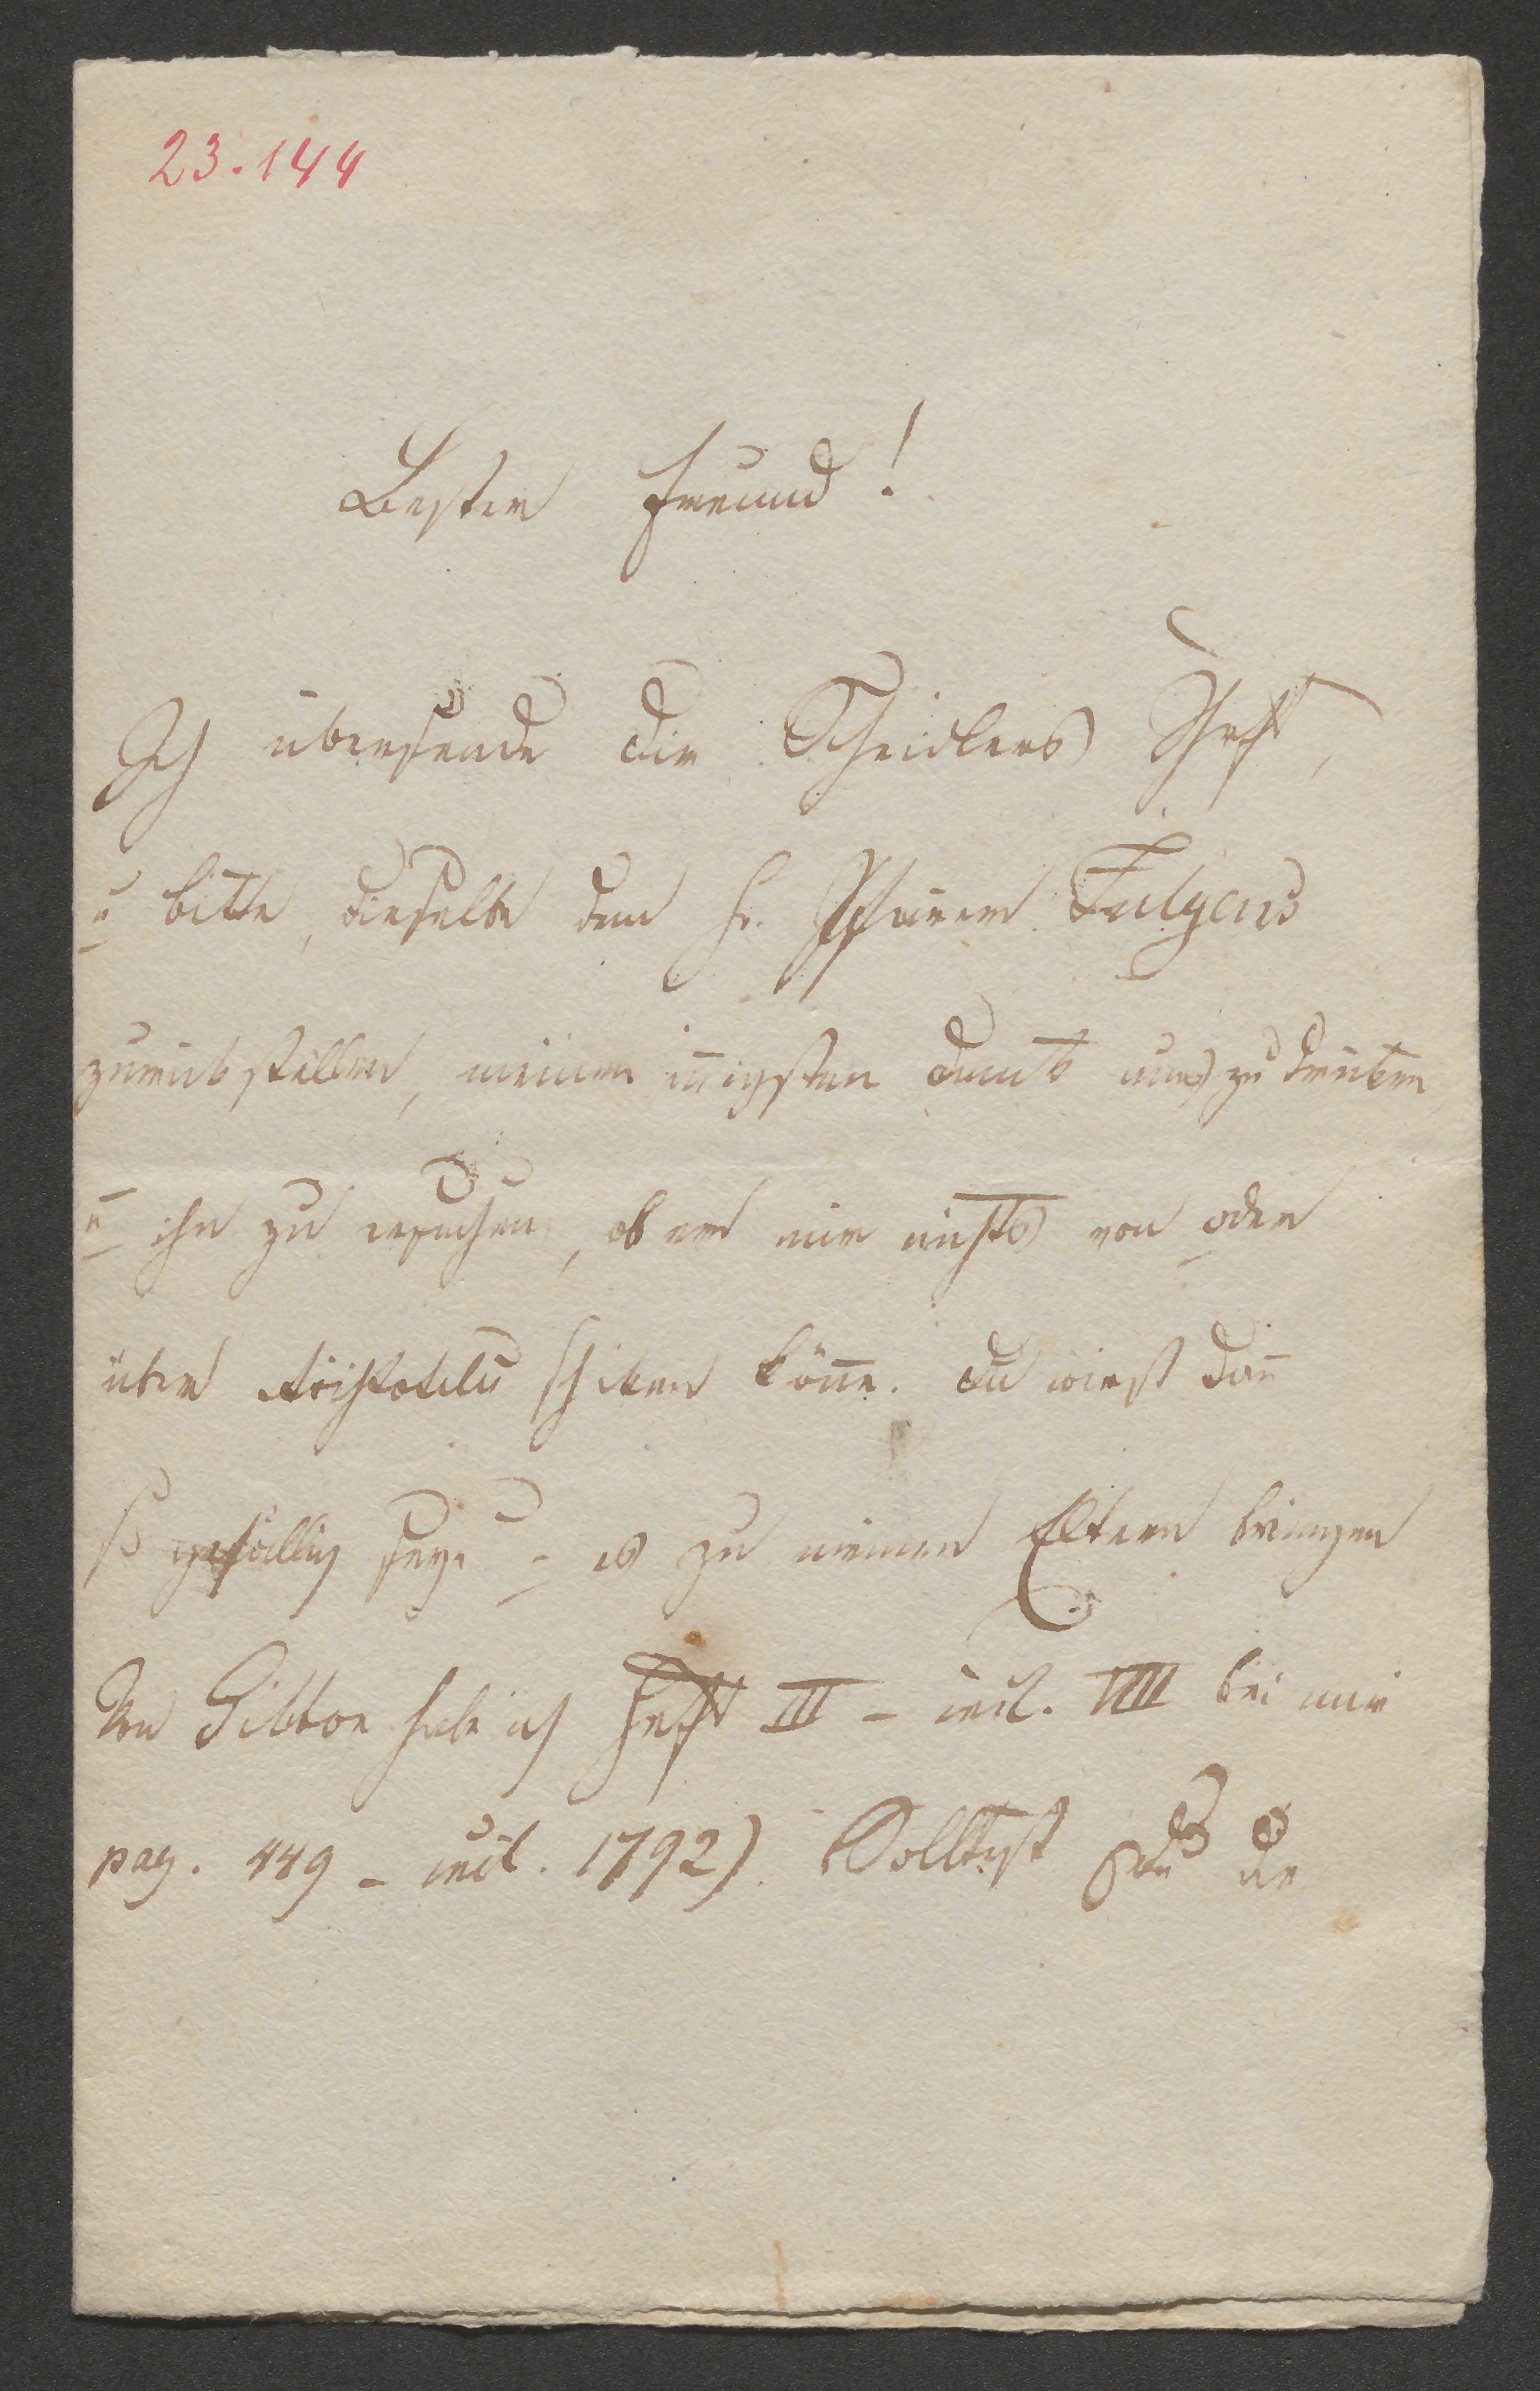 23.144
Bester Freund!
Ich übersende dir Scheidlers Heft,
u bitte, dieselbe dem H. Pfarrer Fulgens
zurückstellen, meinen iñigsten Dank auszudrüken
u ihn zu ersuchen, ob er mir nichts von oder
über Aristoteles schiken köñe. Du wirst dañ
so gefällig seyn u es zu meinen Eltern bringen
Von Gibbon habe ich Heft III – incl. VIII bei mir
pag. 449 – incl. 1792). Solltest Du die